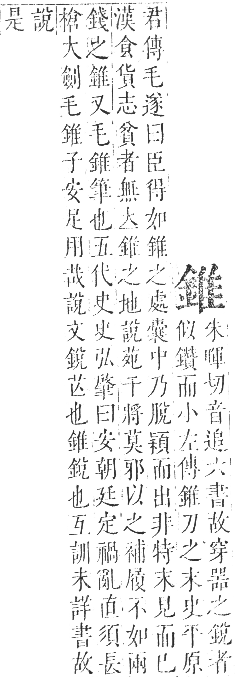 錐
朱暉切音追六書故穿器之銳者
似鑽而小左傳錐刀之末史平原
君傳毛遂曰臣得如錐之處囊中乃脫穎而出非特末見而已
漢食貨志貧者無立錐之地說苑干將莫邪以之補履不如兩
錢之錐又毛錐筆也五代史史弘肇曰安朝廷定禍亂直須長
槍大劍毛錐子安足用哉說文銳芒也錐銳也互訓未詳書故
說
是